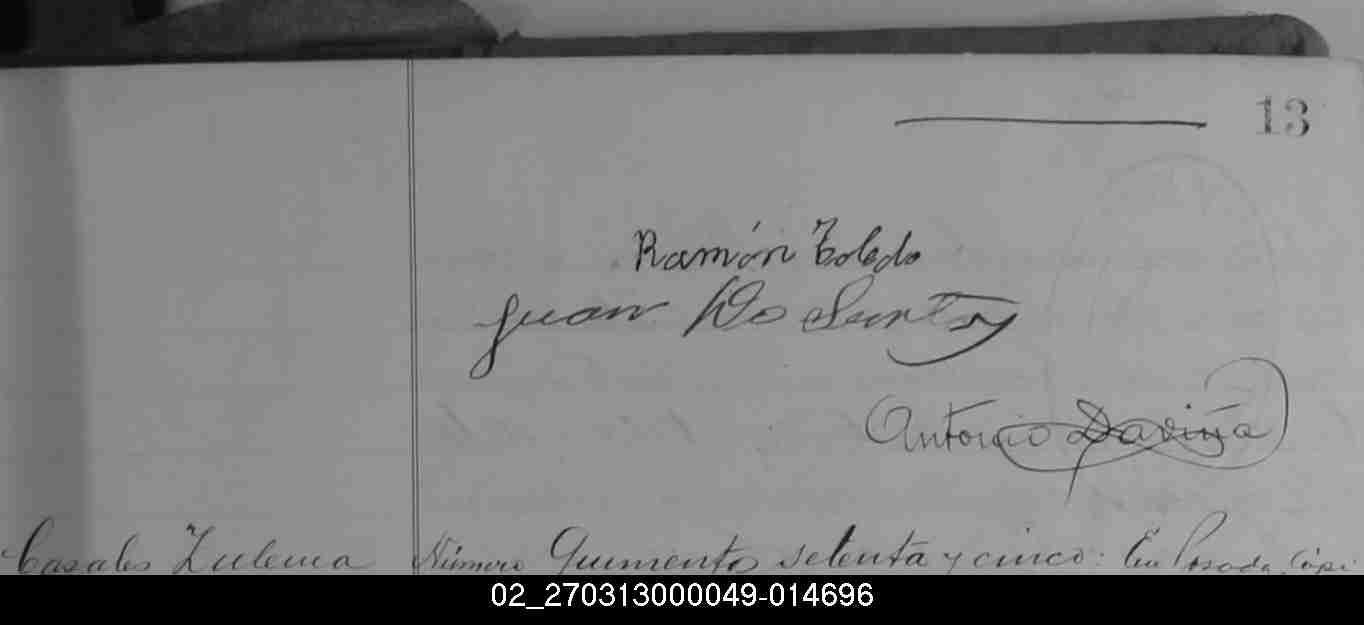 13
Ramón Toledo
Juan Do Santos
Antonio Daviña
Casales Zulema Número Quinientos setenta y cinco: En Posadas, Capi
02_270313000049-014696